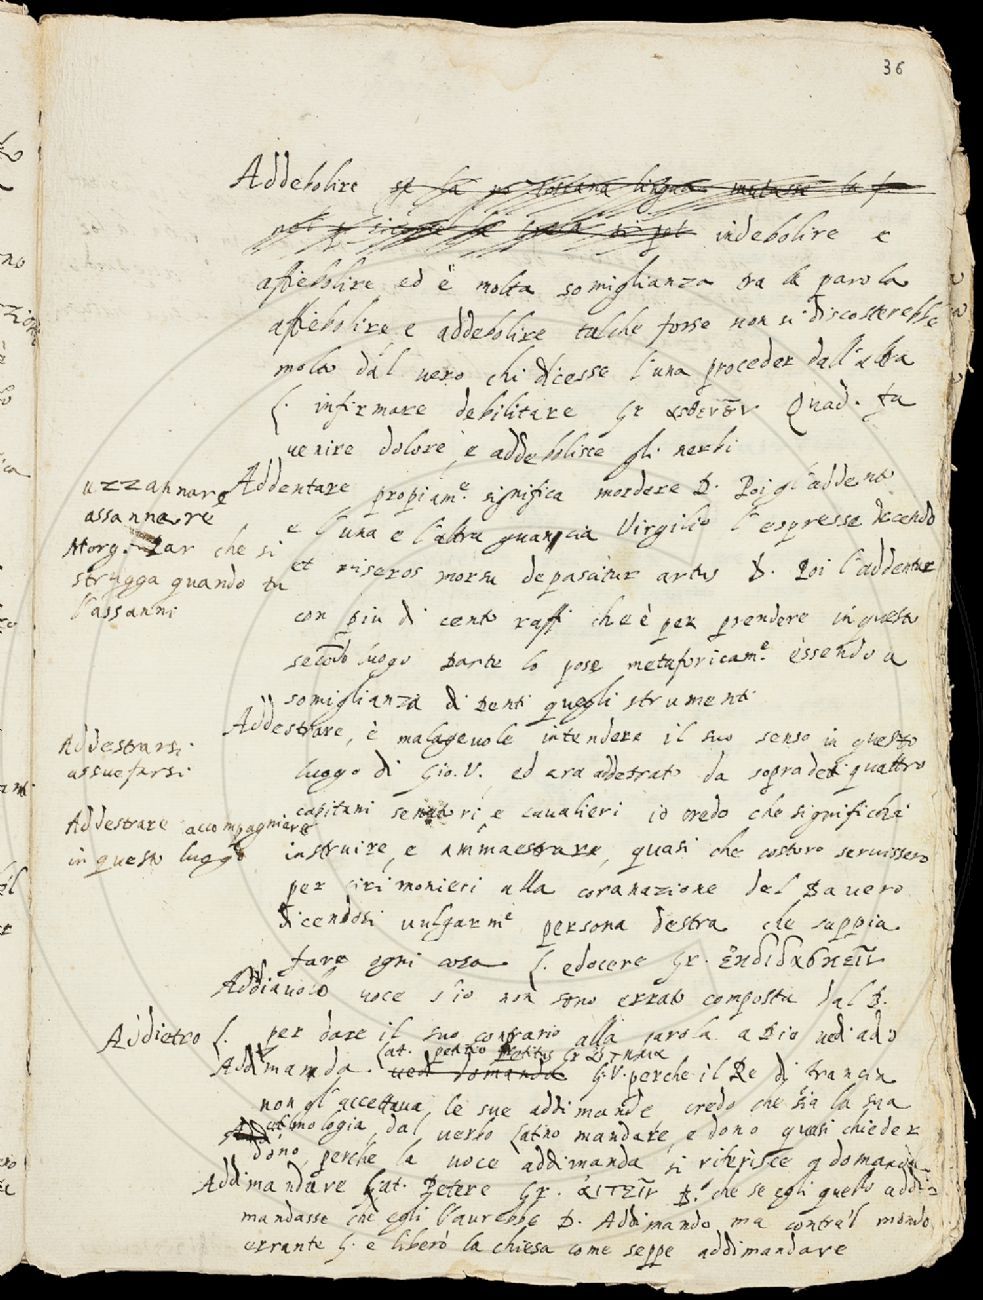 36
Addebolire
indebolire e
affiebolire ed è molta somiglianza tra la parola
affiebolire, e addebolire talche forse non si discosterebbe
molto dal uero chi dicesse l'una proceder dall'altra
L. infirmare debilitare Gr ασθενεῖν Quad. fa
uenire dolore, e addebolisce gli nerbi
uzzannare
assannare
Morg. che si
strugga quando tu
l'assanni
Addentare propiam.e significa mordere D. Poi gl'addentò
e l'una e l'altra guancia Virgilio l'espresse dicendo
et miseros morsu depascitur artus D. Poi l'addentar
con piu di cento raffi che è per prendere in questo
secondo luogo Dante lo pose metaforicam.e essendo a
somiglianza di denti quegli strumenti
Addestrarsi
assuefarsi
Addestrare accompagniare
in questo luogo
Addestrare, è malageuole intendere il suo senso in questo
luogo di Gio. V. ed era addetrato da sopradei quattro
capitani senatori, e caualieri io credo che significhi
instruire, e ammaestrare, quasi che costoro seruissero
per cirimonieri alla coranazione del Bauero
dicendosi uulgarm.e persona destra che sappia
fare ogni cosa L. edocere Gr.
Addiauolo uoce s'io non sono errato composta dal D.
Addietro L. per dare il suo contrario alla parola a Dio uedi ado
Addimanda. Lat. Gr
uedi domanda G.V. perche il Re di Francia
non gl'accettaua, le sue addimande, credo che sia la sua
etimologia, dal uerbo Latino mandare, e dono quasi chieder
dono, perche la uoce addimanda si riferisce q domanda
Addimandare Lat. Petere Gr. ἀιτεῖν D. che se egli quello addi=
mandasse che egli l'aurebbe D. Addimandò, ma contra'l mondo
errante G. e liberò la chiesa come seppe addimandare